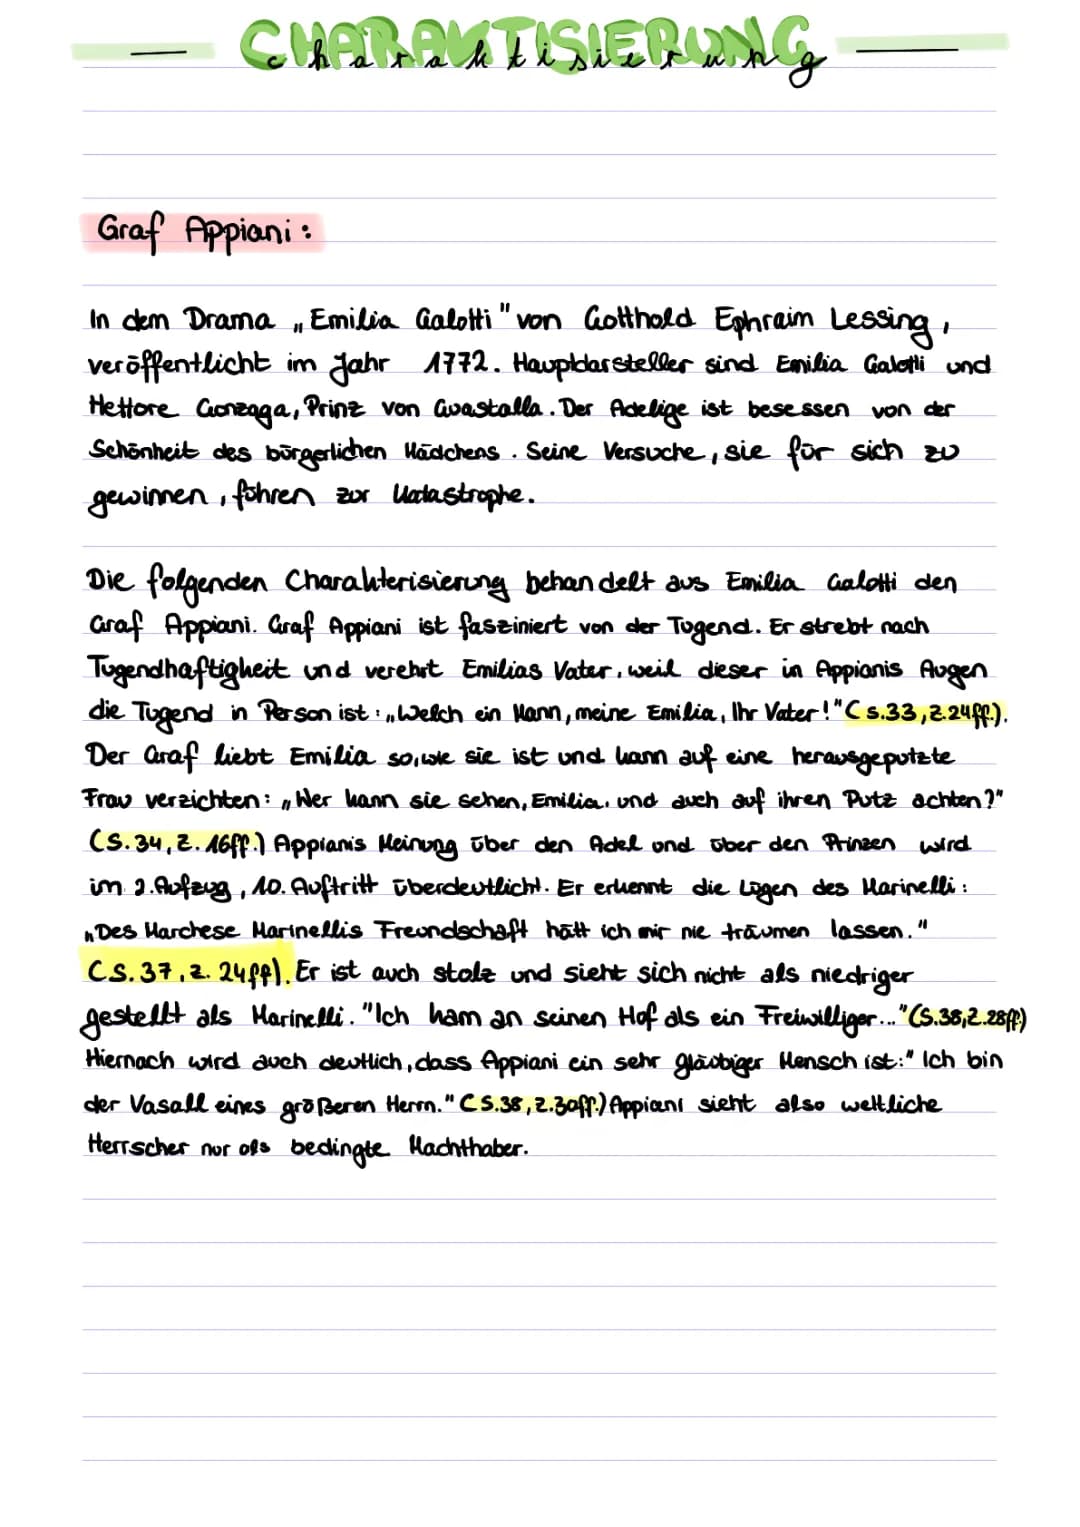 CHARAKTISIERUNG
charaktisierung
Graf Appiani:
In dem Drama „Emilia Galotti" von Gotthold Ephraim Lessing,
veröffentlicht im Jahr 1772. Hauptdarsteller sind Emilia Galotti und
Hettore Gonzaga, Prinz von Guastalla. Der Adelige ist besessen von der
Schönheit des bürgerlichen Mädchens. Seine Versuche, sie für sich zu
gewinnen, führen zur Katastrophe.
Die folgenden Charakterisierung behandelt aus Emilia Galotti den
Graf Appiani. Graf Appiani ist fasziniert von der Tugend. Er strebt nach
Tugendhaftigkeit und verehrt Emilias Vater, weil dieser in Appianis Augen
die Tugend in Person ist: „Welch ein Mann, meine Emilia, Ihr Vater!" (S.33, Z.24ff.).
Der Graf liebt Emilia so, wie sie ist und kann auf eine herausgeputzte
Frau verzichten: „Wer kann sie sehen, Emilia, und auch auf ihren Putz achten?"
(S.34, Z. 16ff.) Appianis Meinung über den Adel und über den Prinzen wird
im 2. Aufzug, 10. Auftritt überdeutlicht. Er erkennt die Lügen des Marinelli:
„Des Marchese Marinellis Freundschaft hätt ich mir nie träumen lassen."
(S. 37, Z. 24ff). Er ist auch stolz und sieht sich nicht als niedriger
gestellt als Marinelli. "Ich kam an seinen Hof als ein Freiwilliger..." (S.38, Z.28ff.)
Hiernach wird auch deutlich, dass Appiani ein sehr gläubiger Mensch ist:" Ich bin
der Vasall eines größeren Herrn." (S.38, Z.30ff.) Appiani sieht also weltliche
Herrscher nur als bedingte Machthaber.